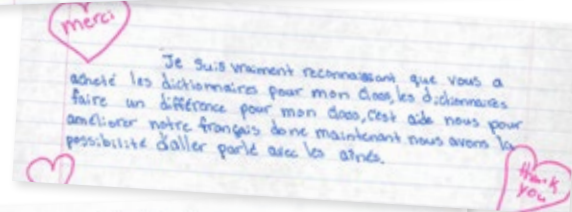 merci
Je suis vraiment reconnaissant que vous a
acheté les dictionnaires pour mon class, les dictionnaires
faire un différence pour mon class, c'est aide nous pour
améliorer notre français donc maintenant nous avons la
possibilité d'aller parlé avec les aînés.
thank
you